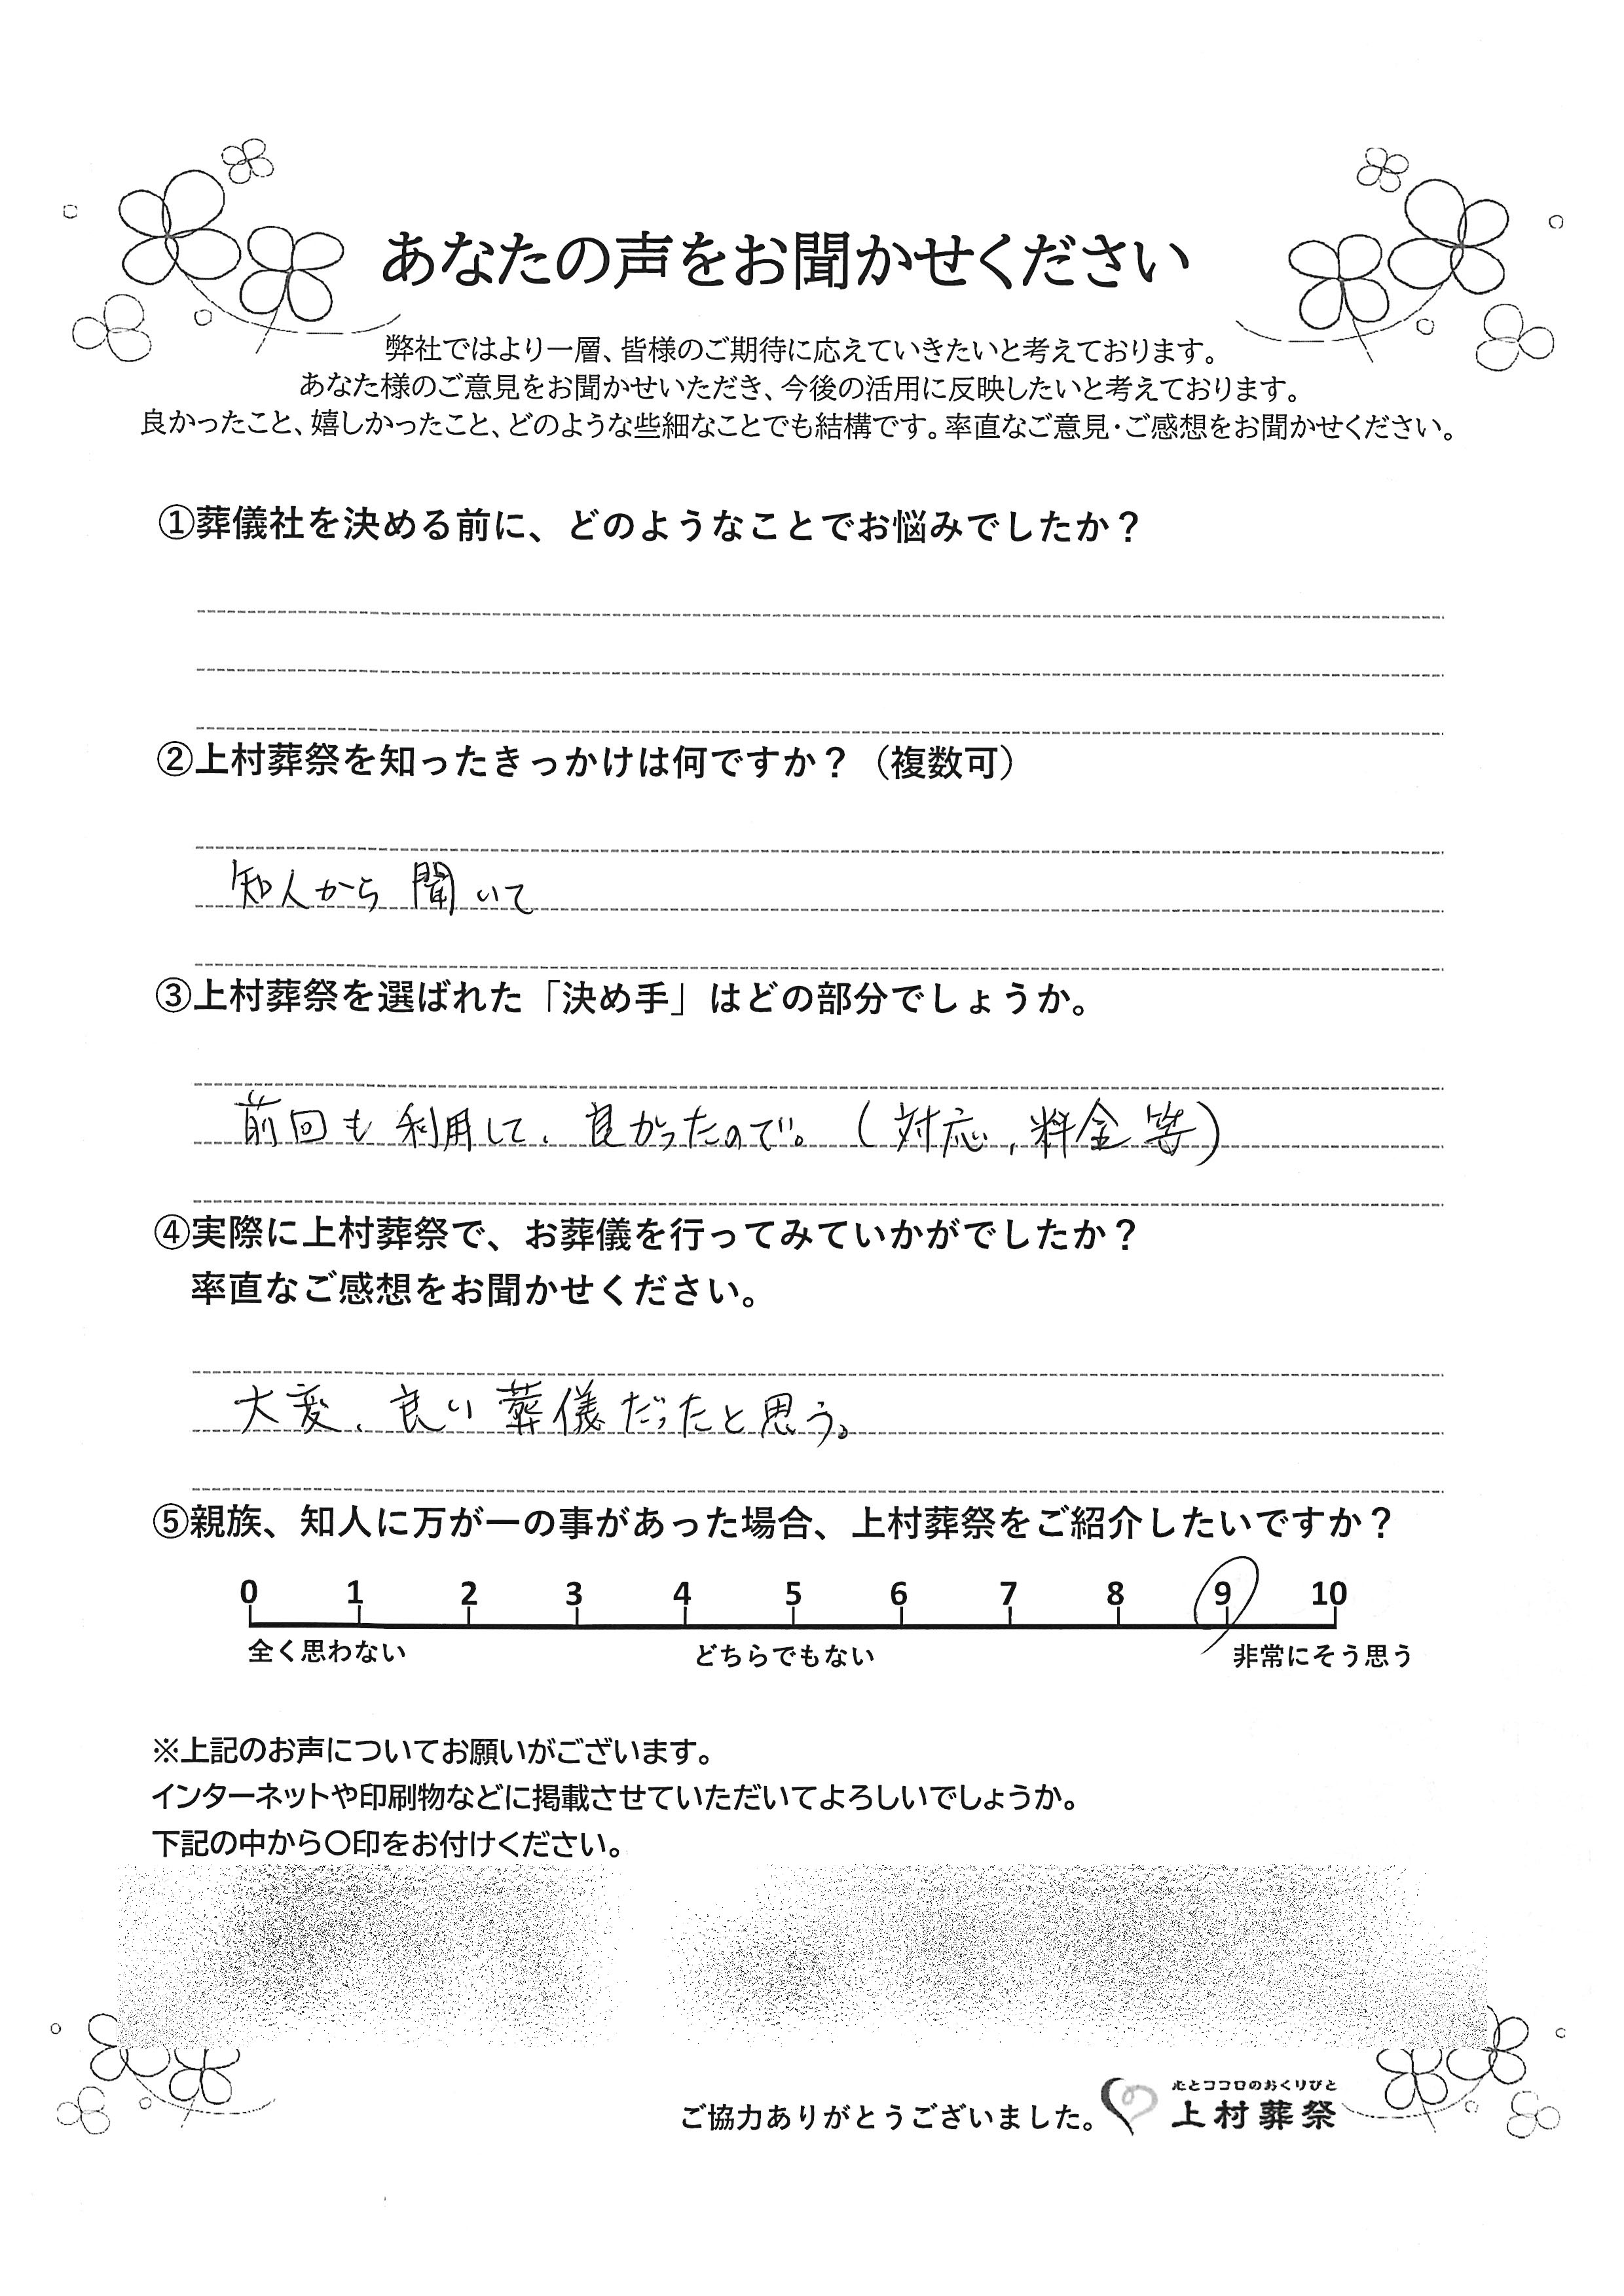 あなたの声をお聞かせください
弊社ではより一層、皆様のご期待に応えていきたいと考えております。
あなた様のご意見をお聞かせいただき、今後の活用に反映したいと考えております。
良かったこと、嬉しかったこと、どのような些細なことでも結構です。率直なご意見・ご感想をお聞かせください。
①葬儀社を決める前に、どのようなことでお悩みでしたか？
②上村葬祭を知ったきっかけは何ですか？（複数可）
知人から聞いて
③上村葬祭を選ばれた「決め手」はどの部分でしょうか。
前回も利用して、良かったので。（対応、料金等）
④実際に上村葬祭で、お葬儀を行ってみていかがでしたか？
率直なご感想をお聞かせください。
大変、良い葬儀だったと思う。
⑤親族、知人に万が一の事があった場合、上村葬祭をご紹介したいですか？
0 1 2 3 4 5 6 7 8 9 10
全く思わない どちらでもない 非常にそう思う
※上記のお声についてお願いがございます。
インターネットや印刷物などに掲載させていただいてよろしいでしょうか。
下記の中から〇印をお付けください。
心とココロのおくりびと
ご協力ありがとうございました。 上村葬祭